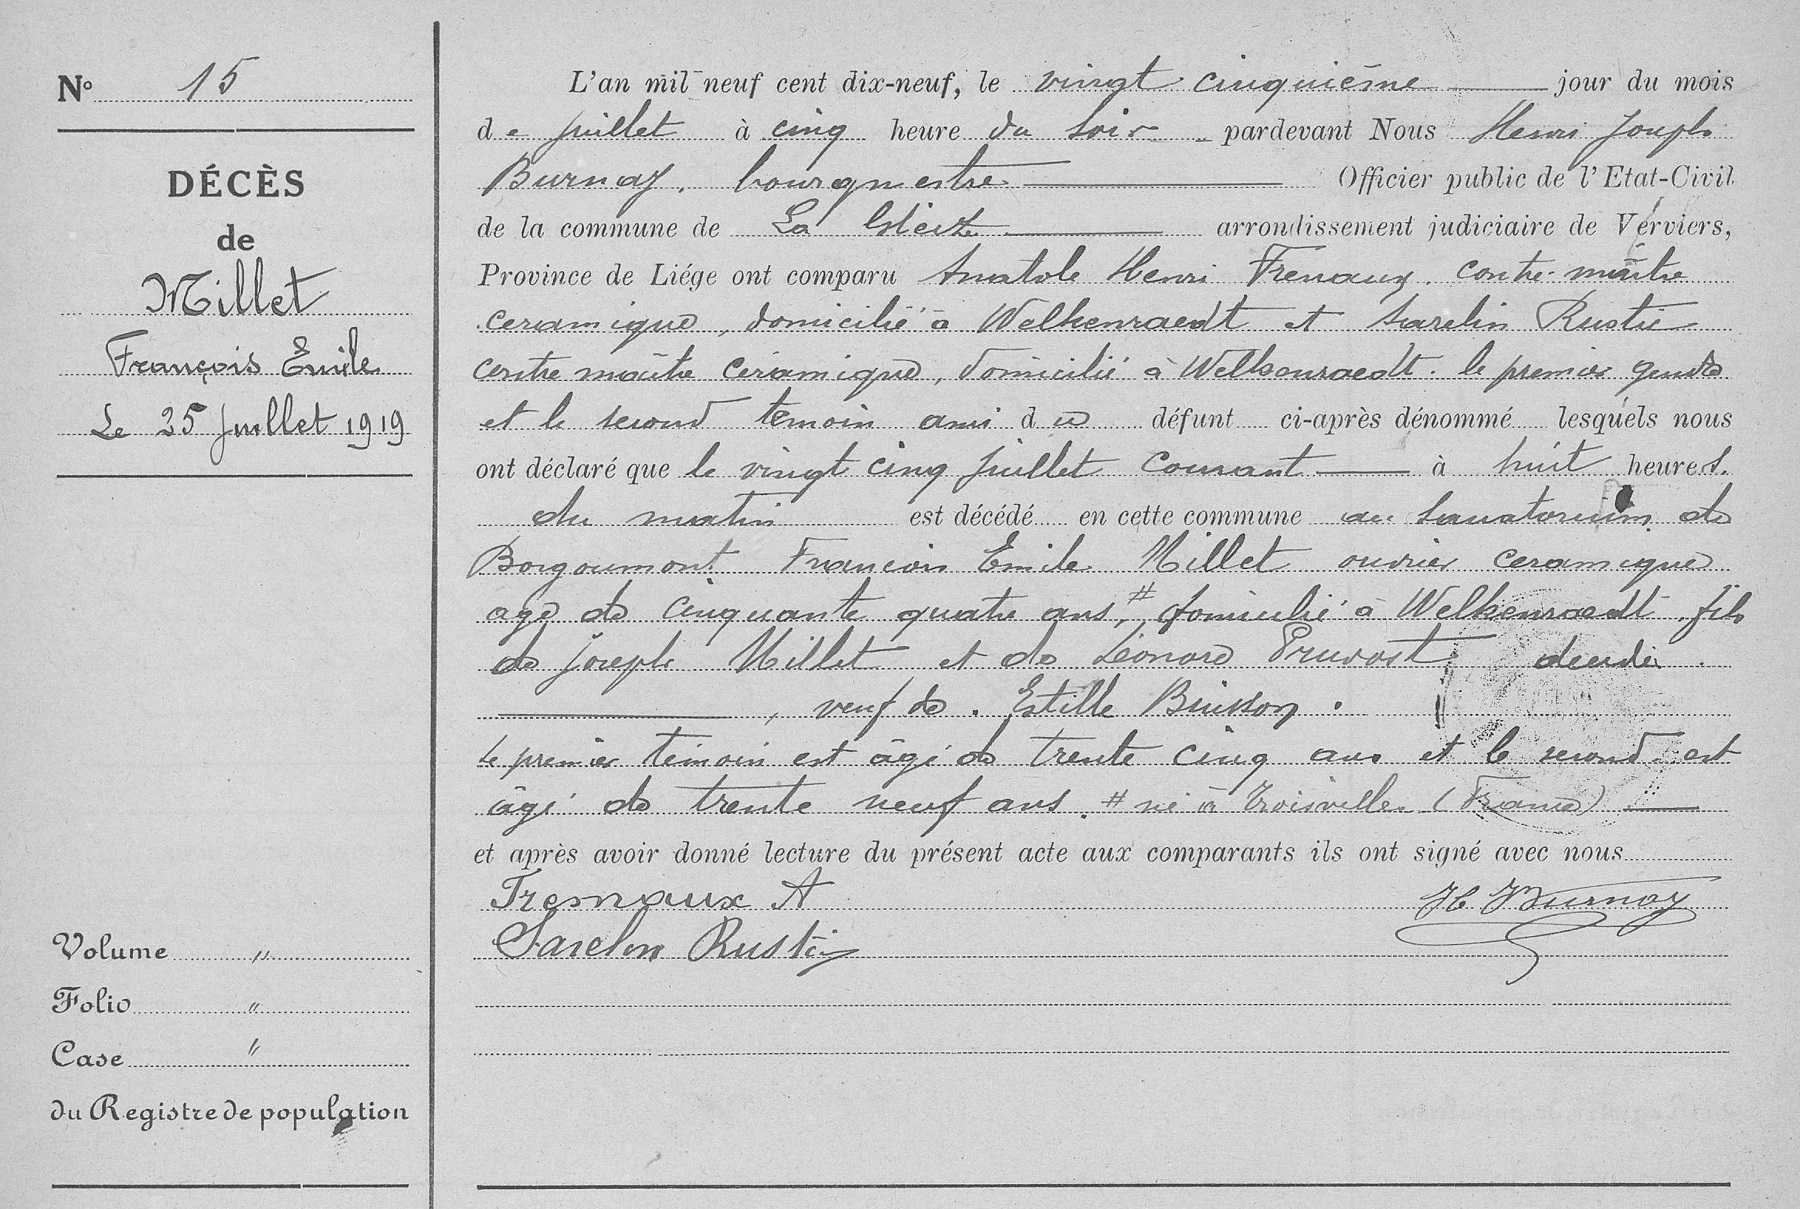 N° 15
DÉCÈS
de
Millet
François Emile
Le 25 Juillet 1919
Volume "
Folio "
Case "
du Registre de population
L'an mil neuf cent dix-neuf, le vingt cinquième jour du mois
de Juillet à cinq heure du soir pardevant Nous Henri Joseph
Burnay, bourgmestre Officier public de l'Etat-Civil
de la commune de La Gleize arrondissement judiciaire de Verviers,
Province de Liége ont comparu Anatole Henri Frenaux, contre-maître
ceramique, domicilié à Welkenraedt et Sarelin Rustie
contre maître céramique, domicilié à Welkenraedt. le premier gendre
et le second temoin ami du défunt ci-après dénommé lesquels nous
ont déclaré que le vingt cinq Juillet courant à huit heures.
du matin est décédé en cette commune au Sanatorium de
Borgoumont Francois Emile Millet ouvrier ceramique
age de cinquante quatre ans, # domicilié à Welkenraedt. fils
de Joseph Millet et de Léonore Pruvost décédés.
, veuf de. Estille Buisson.
Le premier témoin est âgé de trente cinq ans et le second est
âgé de trente neuf ans. # né à Troisvilles (France)
et après avoir donné lecture du présent acte aux comparants ils ont signé avec nous
Fresnaux A H Burnay
Sarelin Rustie